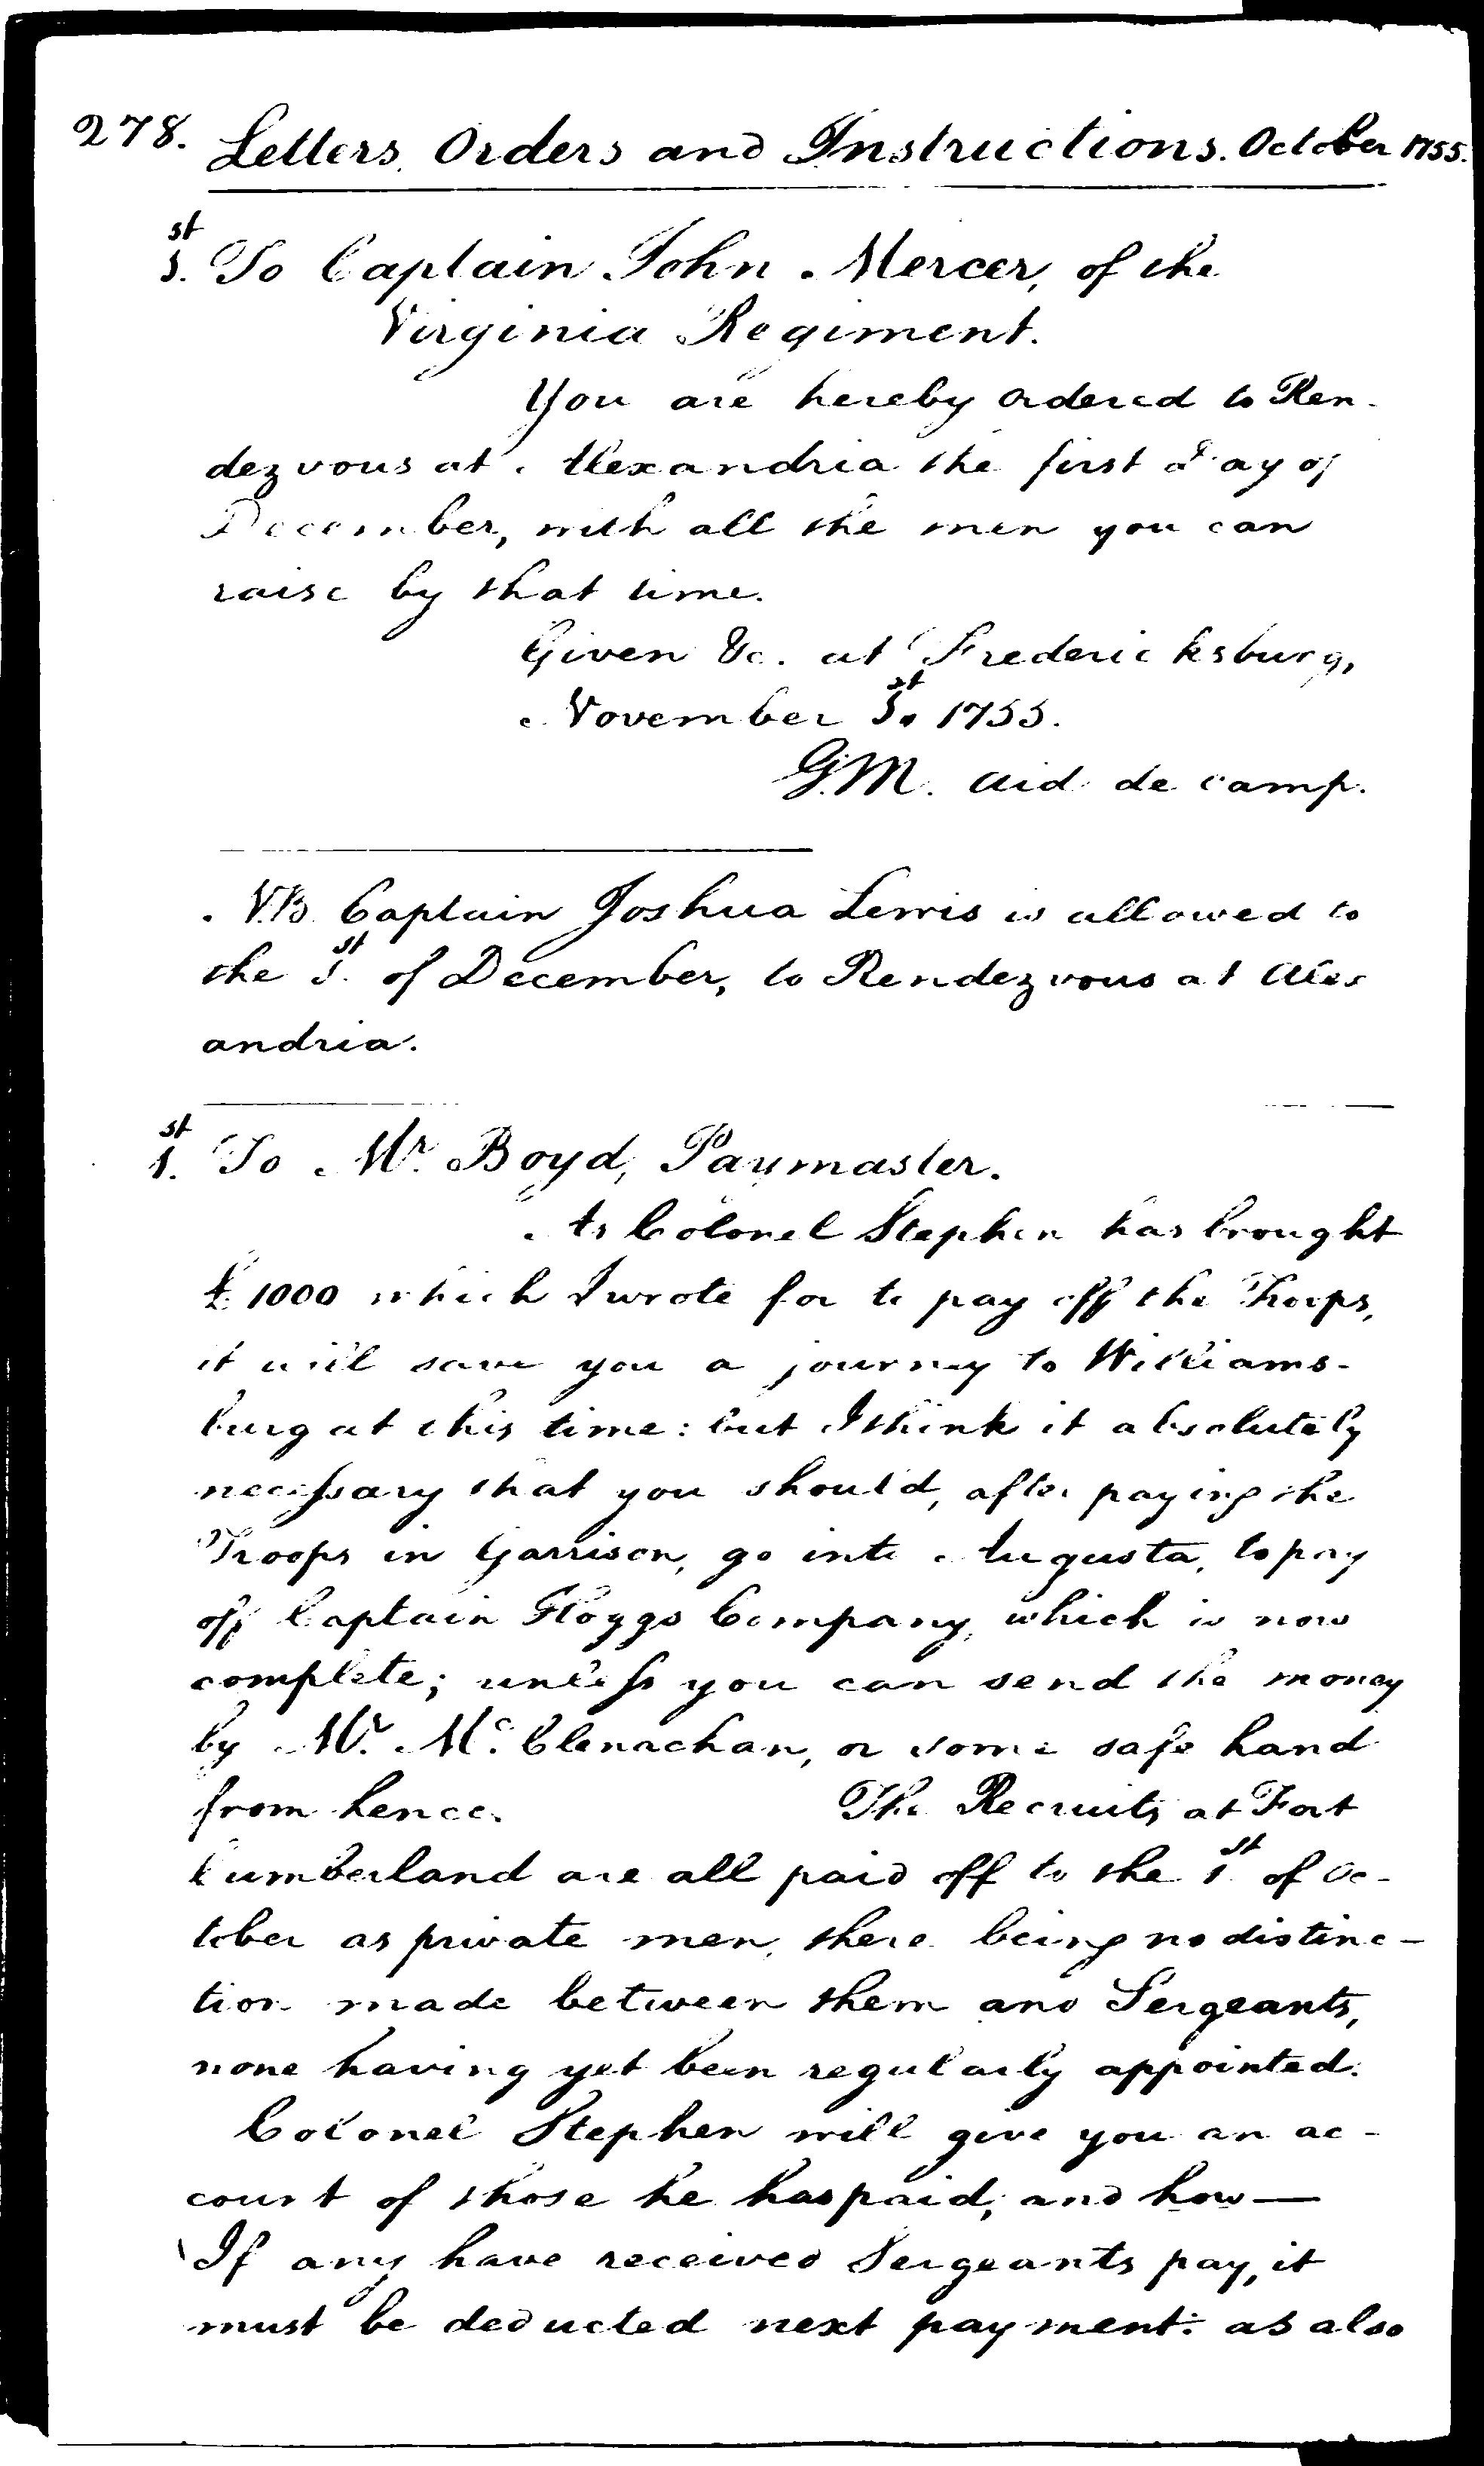 278. Letters, Orders and Instructions. October 1755.
1st. To Captain John Mercer, of the
Virginia Regiment.
You are hereby ordered to Ren-
dezvous at Alexandria the first day of
December, with all the men you can
raise by that time.
Given &c. at Fredericksburg,
November 1st. 1755.
G.M. aid de camp.
N.B. Captain Joshua Lewis is allowed to
the 1st. of December, to Rendezvous at Alex
andria.
1st. To Mr. Boyd, Paymaster.
As Colonel Stephen has brought
£1000 which I wrote for to pay off the Troops,
it will save you a journey to Williams-
burg at this time: but I think it absolutely
necessary that you should, after paying the
Troops in Garrison, go into Augusta, to pay
off Captain Hoggs Company, which is now
complete; unless you can send the money
by Mr. Mc.Clenachan, or some safe hand
from hence. The Recruits at Fort
Cumberland are all paid off to the 1st of Oc-
tober as private men, there being no distinc-
tion made between them and Sergeants,
none having yet been regularly appointed.
Colonel Stephen will give you an ac-
count of those he has paid; and how—
If any have received Sergeants pay, it
must be deducted next payment: as also